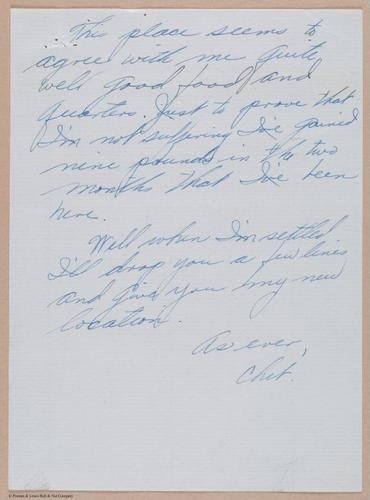 This place seems to
agree with me quite
well good food and
quarters. Just to prove that
I'm not suffering I've gained
nine pounds in the two
months that I've been
here.
Well when I'm settled
I'll drop you a few lines
and give you my new
location.
As ever,
Chet.